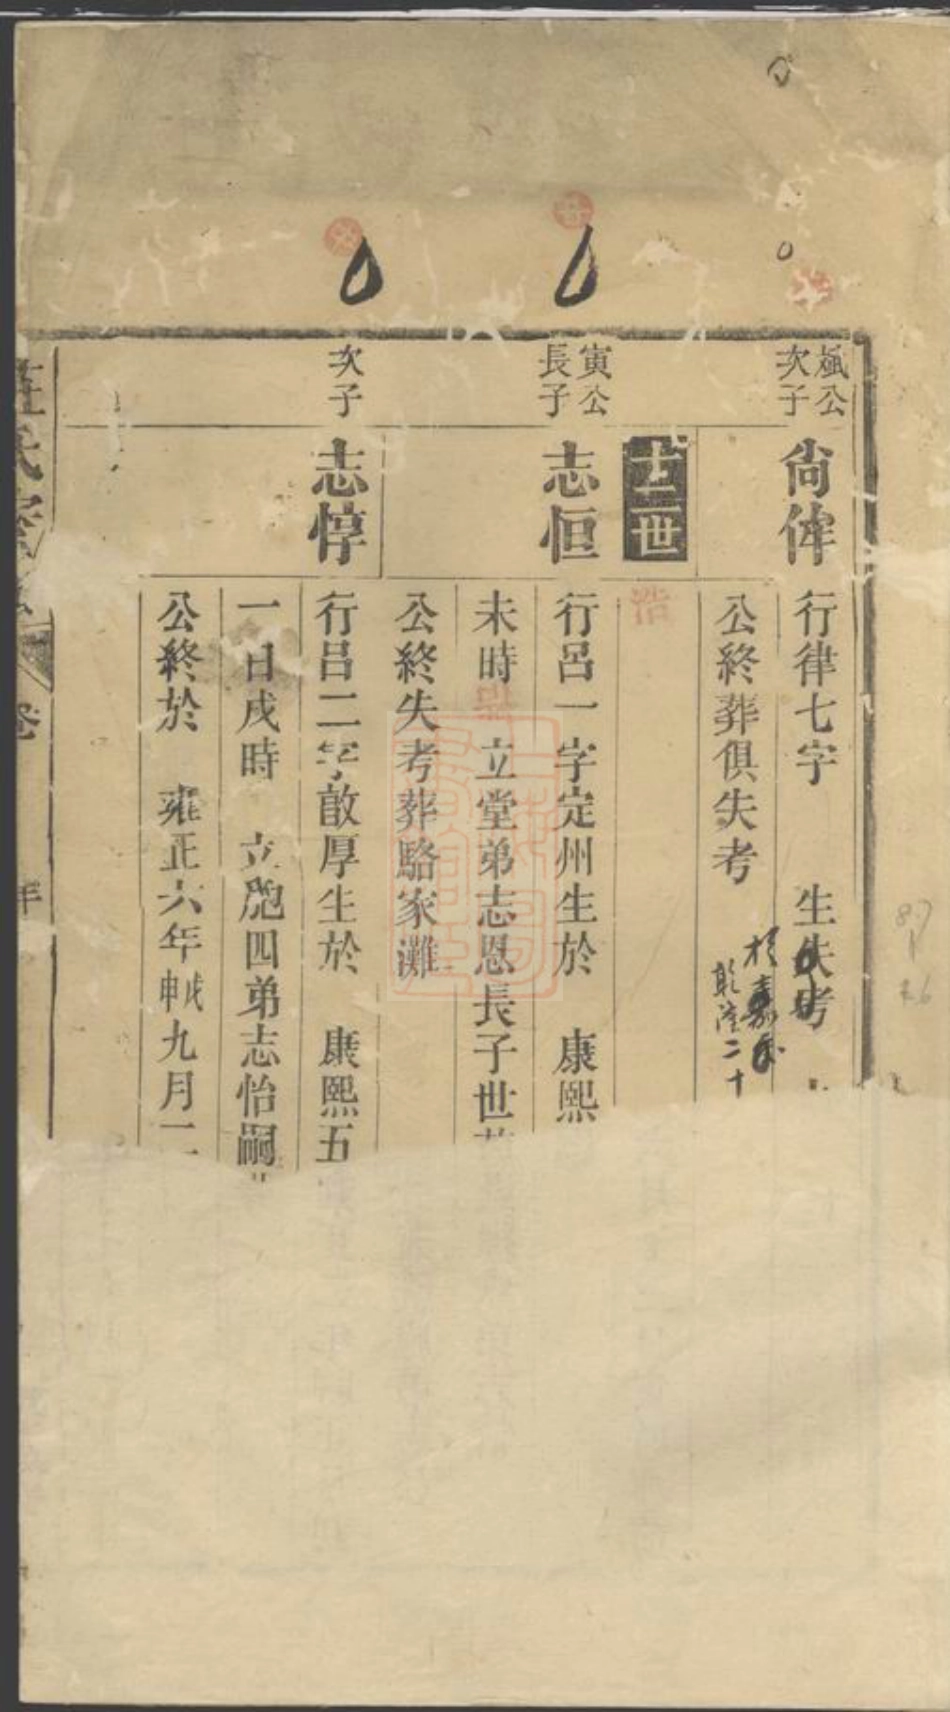 公
次子
尚偉
行律七字 生失考
公終葬俱失考
乾隆二十
十二世
寅公
長子
志恒
行呂一字定州生於 康熙
未時 立堂弟志恩長子世
公終失考葬駱家灘
次子
志惇
行呂二字敵厚生於 康熙五
一日戌時 立胞四弟志怡嗣
公終於 雍正六年戊申九月二
氏
卷
年